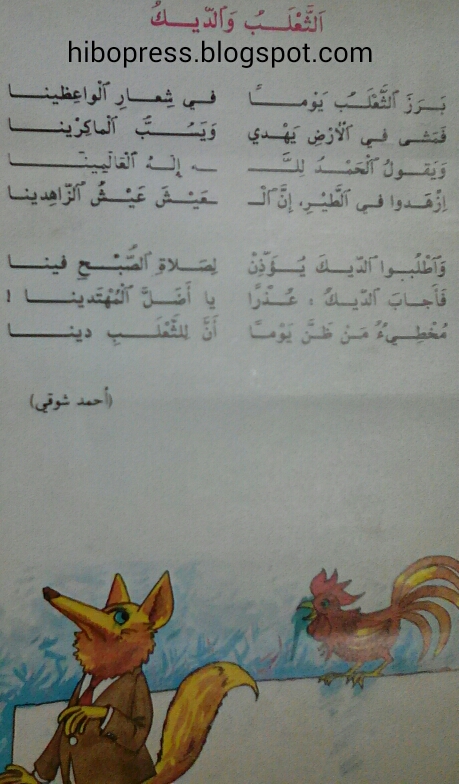 اَلثَّعْلَبُ وَالدّيكُ
hibopress.blogspot.com
بَرَزَ الثَّعْلَبُ يَوْمـًا في شِعـارِ الْواعِظينـا
فَمَشى في الْأَرْضِ يَهْدي وَيَسُبُّ الْماكِرْينـا
وَيَقـولُ الْحَمْـدُ لِلَّـ ـهِ إِلـٰهِ الْعَالَمِينَـا
اِزْهَدوا في الطَّيْرِ، إِنَّ الْـ ـعَيْشَ عَيْشُ الزّاهِدينا
وَاطْلُبـوا الدّيكَ يُـؤَذِّنْ لِصَـلاةِ الصُّبْـحِ فينـا
فَأَجـابَ الدّيـكُ : عُـذْرًا يا أَضَلَّ الْمُهْتَدينـا !
مُخْطِـيءٌ مَـن ظَنَّ يَوْمـًا أَنَّ لِلثَّعْلَـبِ دينـا
(أحمد شوقي)